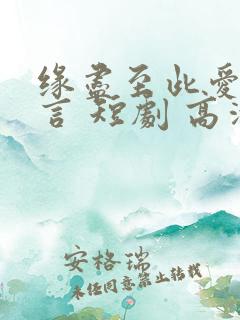 缘盡至此,愛
言 短劇 高
安格瑞
未经同意禁止转载